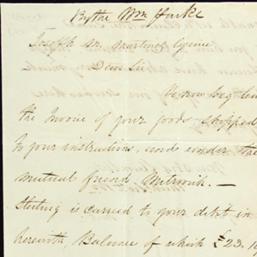 Joseph M. Martinez Esquire
Dear Sir
We now beg
the Invoice of your goods shipped
to your instructions, and under the
mutual friend
Sterling is carried to your debt in
herewith Balance of which £23.